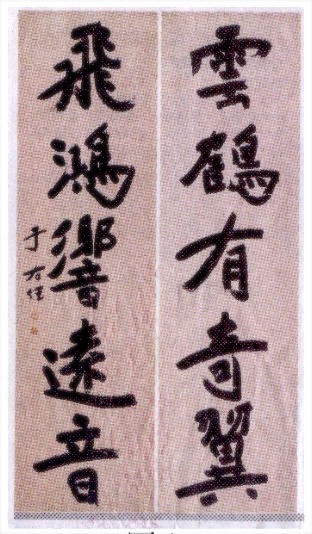 雲鶴有奇翼
飛鴻響遠音
于右任